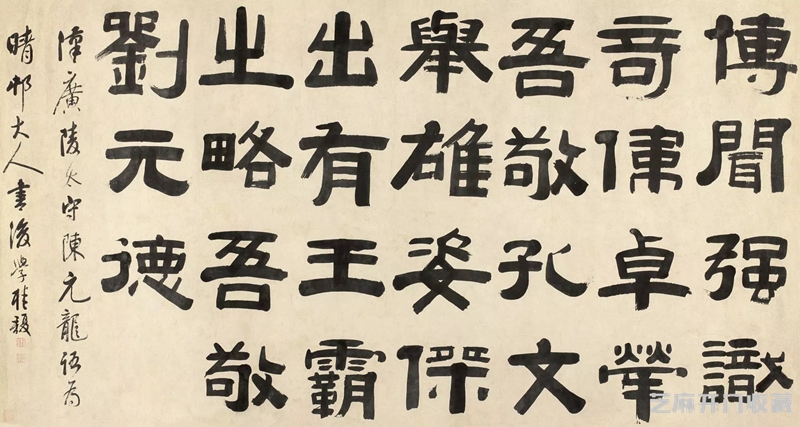 博聞强識
奇偉卓犖
吾敬孔文
舉雄姿傑
出有王霸
之略吾敬
劉元德
漢廣陵太守陳元龍語為
晴邨大人書後學桂馥
芝麻开门收藏